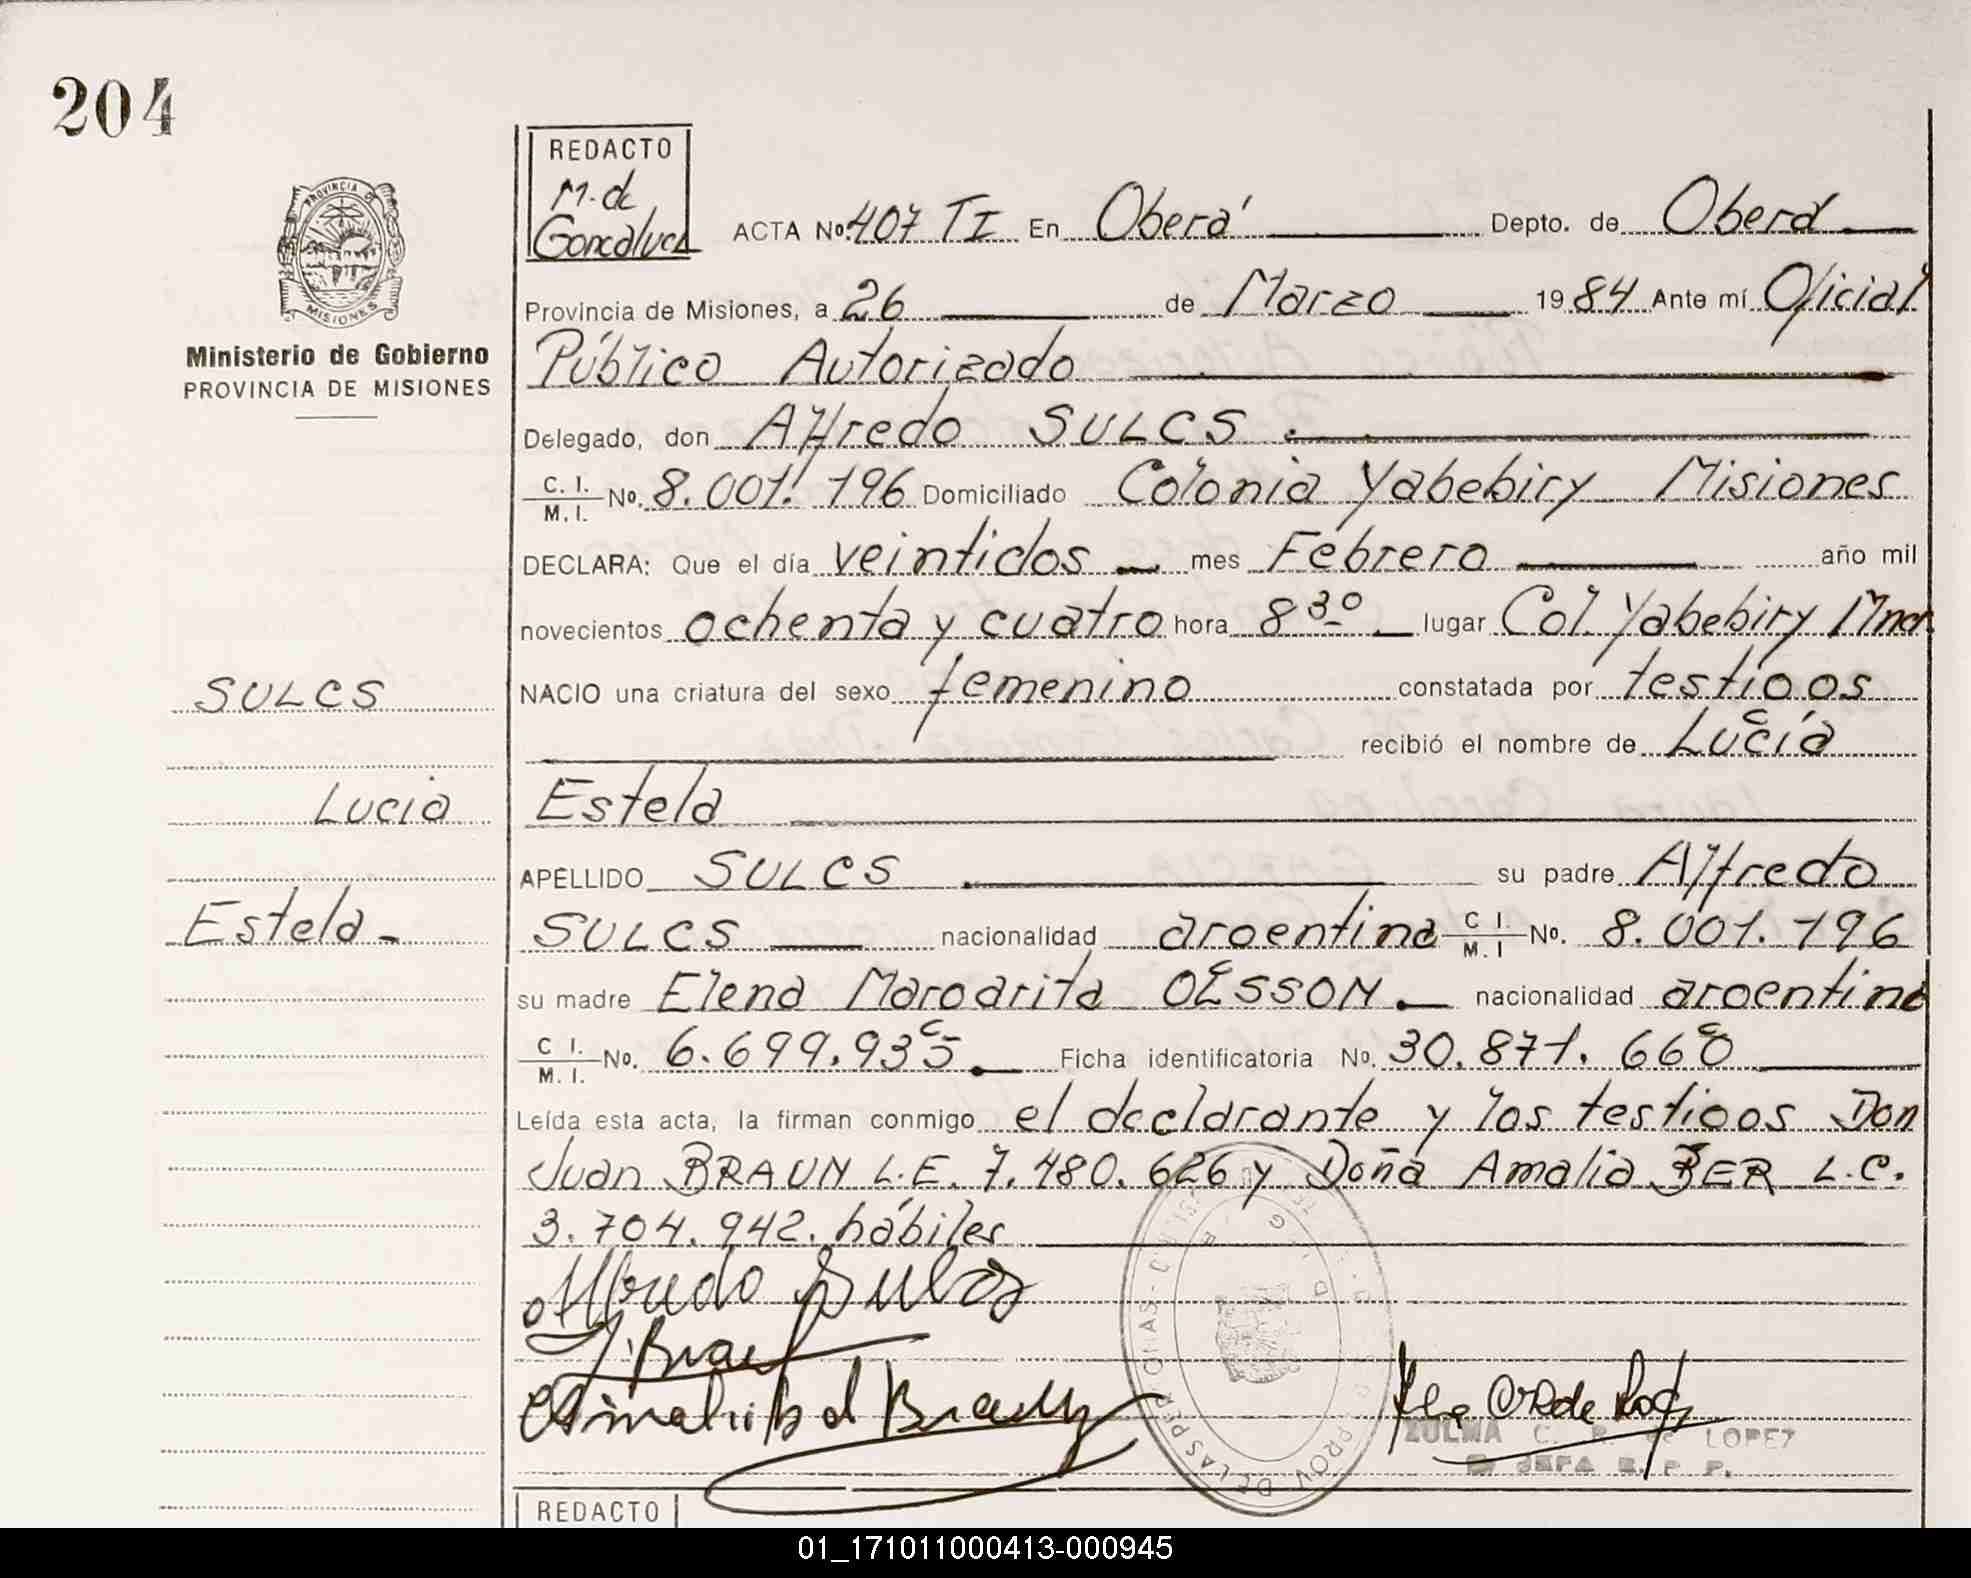 204
REDACTO
M. de
Goncalves
ACTA No. 407 TI En Oberá Depto. de Oberá
Provincia de Misiones, a 26 de Marzo 1984 Ante mí Oficial
Público Autorizado
PROVINCIA DE
MISIONES
Ministerio de Gobierno
PROVINCIA DE MISIONES
Delegado, don Alfredo SULCS.
C. I. M. I. No. 8.001.196 Domiciliado Colonia Yabebiry Misiones
DECLARA: Que el día veintidos mes Febrero año mil
novecientos ochenta y cuatro hora 8 30 lugar Col. Yabebiry Mnes
NACIO una criatura del sexo femenino constatada por testigos
recibió el nombre de Lucía
Estela
SULCS
Lucia
Estela-
APELLIDO SULCS su padre Alfredo
SULCS nacionalidad argentina C I. M. I No. 8.001.196
su madre Elena Margarita OLSSON. nacionalidad argentina
C I. M. I. No. 6.699.935. Ficha identificatoria No. 30.871.668
Leída esta acta, la firman conmigo el declarante y los testigos Don
Juan BRAUN L.E. 7.480.626 y Doña Amalia BER L.C.
3.704.942. hábiles
Alfredo Sulcs
J. Braun
ZULMA C. R. de LOPEZ
JEFA R. P. P.
REDACTO
01_171011000413-000945